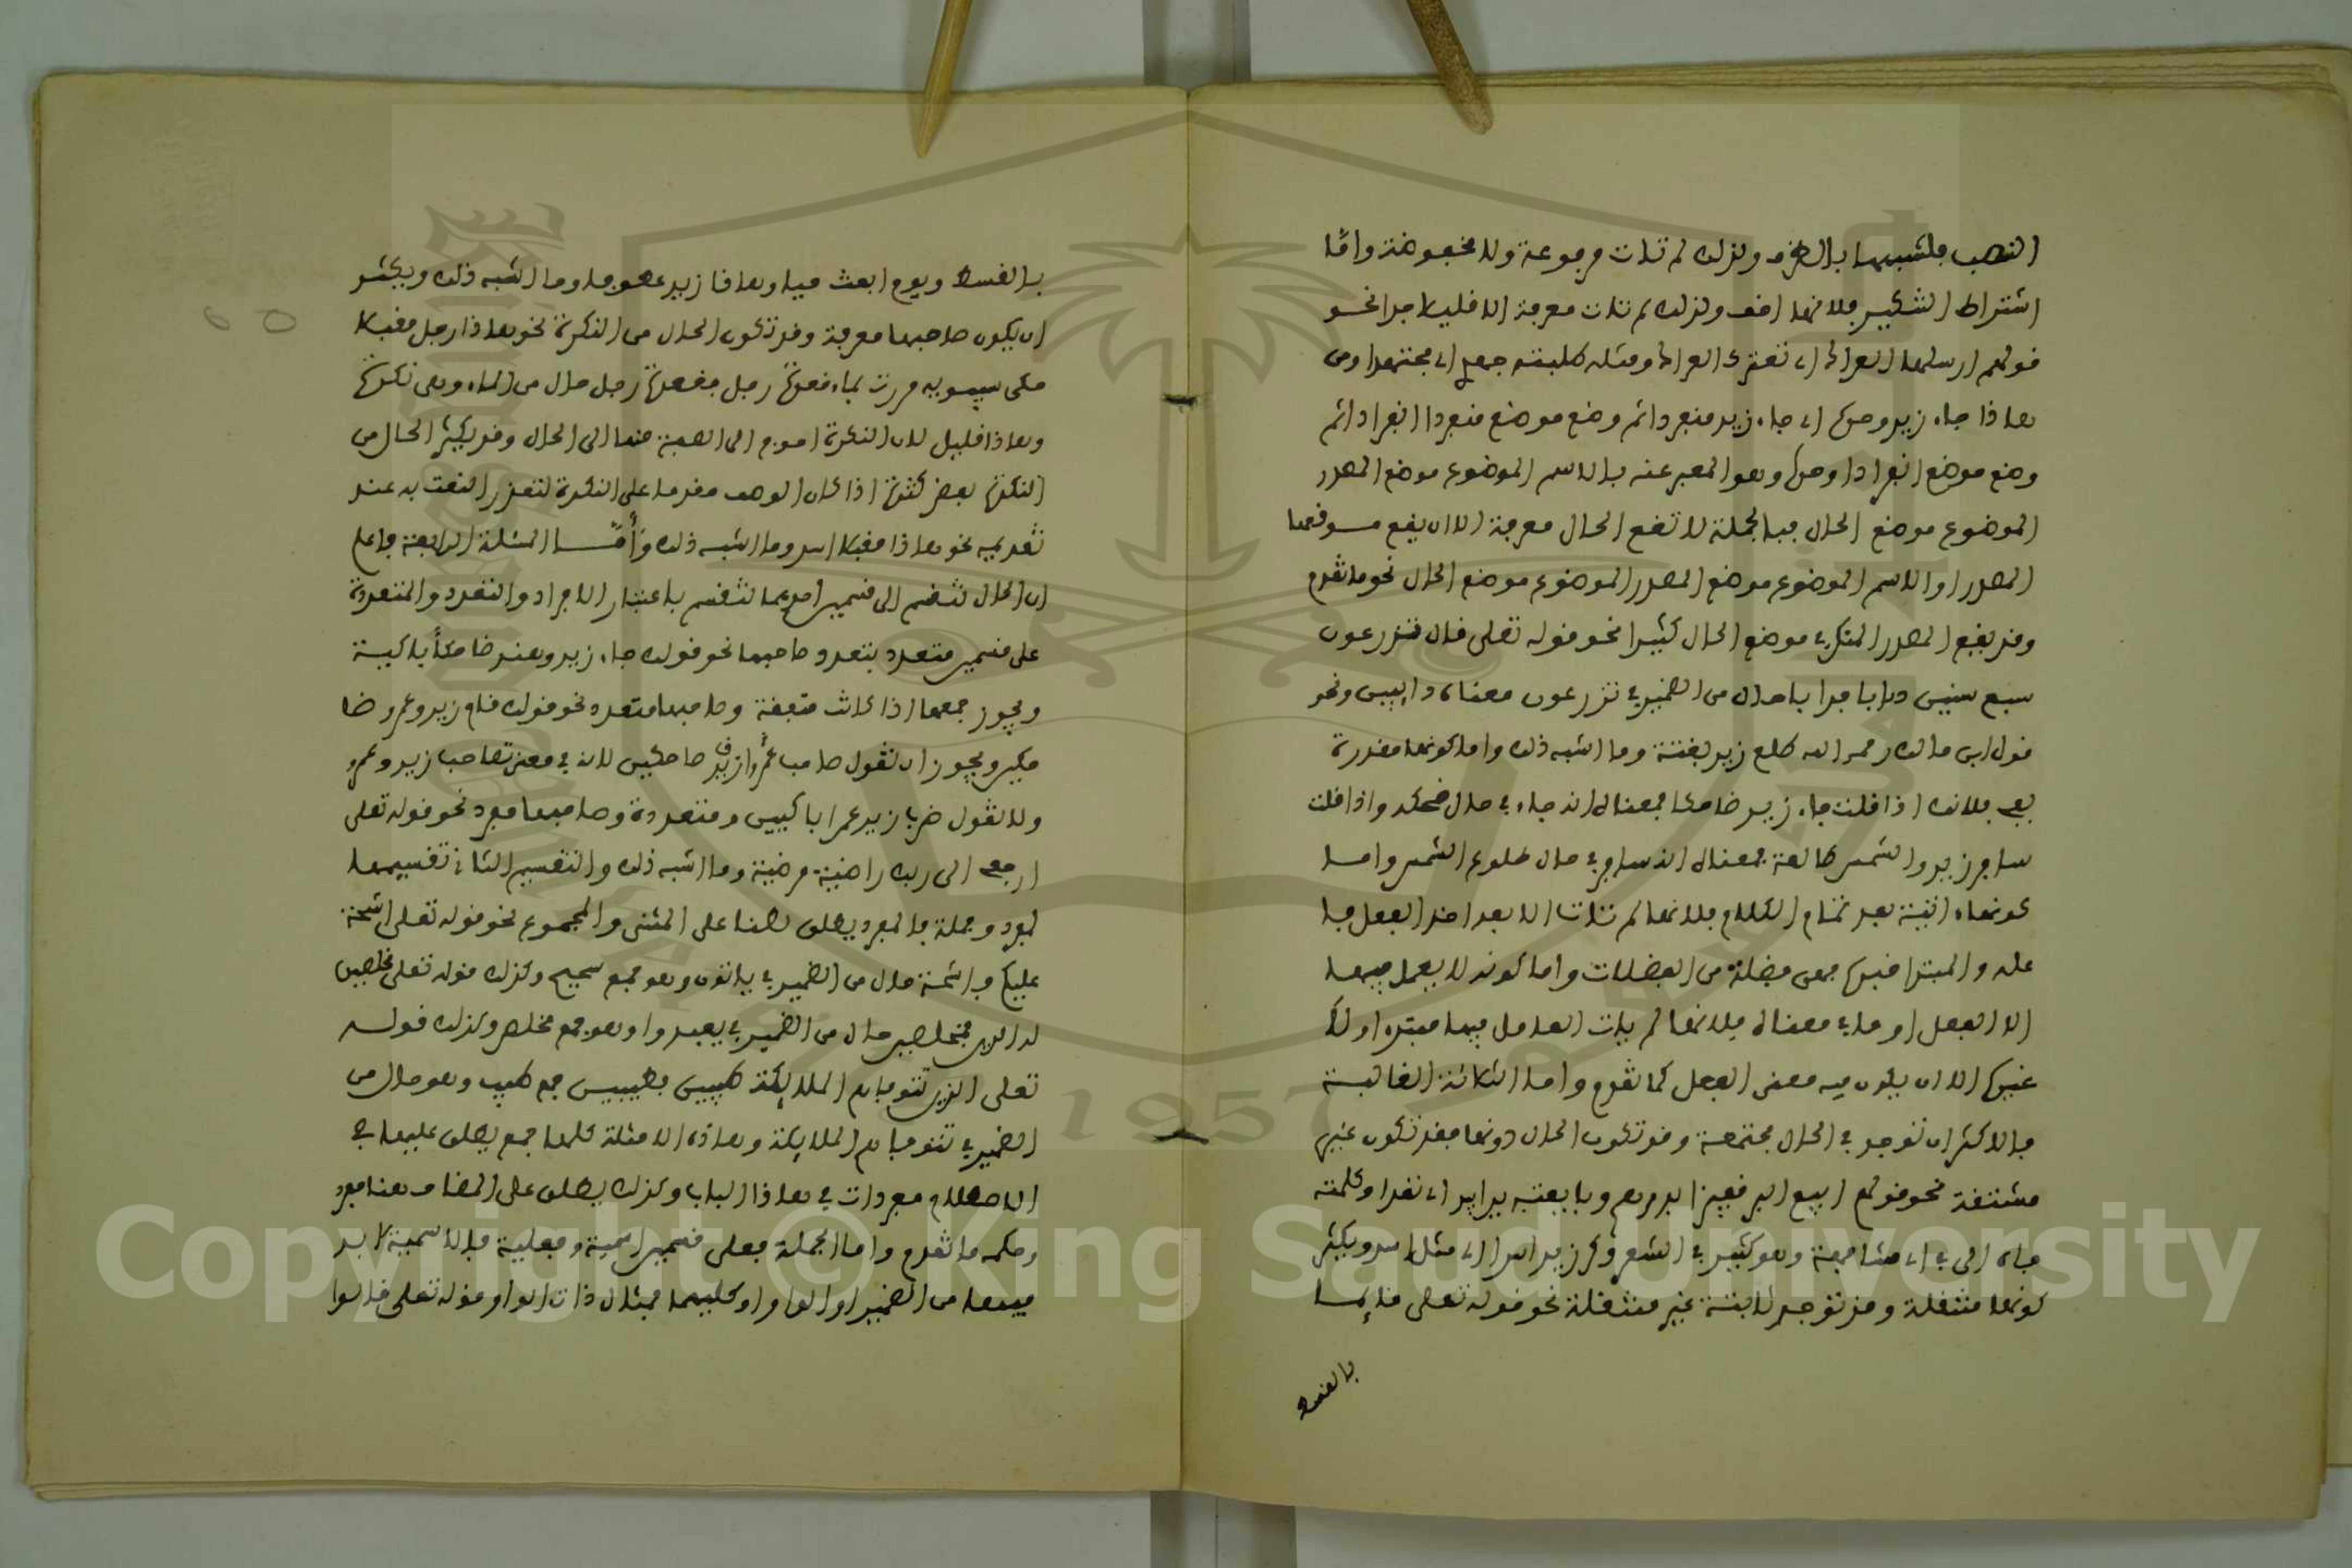 النصب فلشبهها بالظرف ولذلك لم تات مرفوعة ولا مخفوضة واما
اشتراط التنكير فلانها اخف ولذلك لم تات معرفة الا قليلا جدا نحو
قولهم ارسلها العراك اي تعترك العراك ومثله كلمته جهدي اي مجتهدا ومن
هاذا جاء زيد وحده اي جاء زيد منفردا ثم وضع موضع منفردا انفرادا ثم
وضع موضع انفرادا وحده وهو المعبر عنه بالاسم الموضوع موضع المصدر
الموضوع موضع الحال فبالجملة لا تقع الحال معرفة الا ان يقع موقعها
المصدر او الاسم الموضوع موضع المصدر الموضوع موضع الحال نحو ما تقدم
وقد يقع المصدر المنكر في موضع الحال كثيرا نحو قوله تعلى قال تزرعون
سبع سنين دابا فدابا حال من الضمير في تزرعون معناه دايبين ونحو
قول ابن مالك رحمه الله طلع زيد بغتة وما اشبه ذلك واما كونها مقدرة
بفي فلانك اذا قلت جاء زيد ضاحكا فمعناه انه جاء في حال ضحكه واذا قلت
سافر زيد والشمس طالعة فمعناه انه سافر في حال طلوع الشمس واما
كونها اتية بعد تمام الكلام فلانها لم تات الا بعد اخذ الفعل فا
عله والمبتدا خبره فهي فضلة من الفضلات واما كونه لا يعمل فيها
الا الفعل او ما في معناه فلانها لم يات العامل فيها مبتدا ولا
غيره الا ان يكون فيه معنى الفعل كما تقدم واما الثلاثة الغالبة
فالاكثر ان توجد في الحال مجتمعة وقد تكون الحال دونها فقد تكون غير
مشتقة نحو قولهم ابيع البر قفيزا بدرهم وبايعته يدا بيد اي نقدا وكلمته
فاه الى في اي مشافهة وهو كثير في الشعر وكر زيد اسدا اي مثل اسد ويكثر
كونها منتقلة وقد توجد ثابتة غير منتقلة نحو قوله تعلى قايما
بالقسط
بالقسط ويوم ابعث حيا وهاذا زيد وما اشبه ذلك ويكثر
ان يكون صاحبها معرفة وقد تكون الحال من النكرة نحو هاذا رجل مقبلا
حكى سيبويه مررت بماء قعدة رجل فقعدة رجل حال من الماء وهي نكرة
وهاذا قليل لان النكرة احوج الى الصفة منها الى الحال وقد يكثر الحال من
النكرة بعض كثرة اذا كان الوصف مقدما على النكرة لتعذر النعت به عند
تقديمه نحو هاذا مقبلا اسد وما اشبه ذلك وأما المسئلة الرابعة فاعلم
ان الحال تنقسم الى قسمين احدهما تنقسم باعتبار الافراد والتعدد والمتعددة
على قسمين متعدد بتعدد صاحبها نحو قولك جاء زيد وهند ضاحكا باكية
ويجوز جمعها اذا كانت متفقة وصاحبها متعدد نحو قولك قام زيد وعمرو ضا
حكين ويجوز ان تقول صاحب عمرا زيد ضاحكين لانه في معنى تصاحب زيد وعمرو
ولا تقول ضرب زيد عمرا باكيين ومتعددة وصاحبها مفرد نحو قوله تعلى
ارجعي الى ربك راضية مرضية وما اشبه ذلك والتقسيم الثاني تقسيمها
لمفرد وجملة فالمفرد يطلق هنا على المثنى والمجموع نحو قوله تعلى اشحة
عليكم فاشحة حال من الضمير في ياتون وهو جمع شحيح وكذلك قوله تعلى مخلصين
له الدين فمخلصين حال من الضمير في يعبدوا وهو جمع مخلص وكذلك قوله
تعلى الذين تتوفاهم الملايكة طيبين فطيبين جمع طيب وهو حال من
الضمير في تتوفاهم الملايكة وهاذه الامثلة كلها جمع يطلق عليها في
الاصطلاح مفردات في هاذا الباب وكذلك يطلق على المضاف هنا مفرد
وحكمه ما تقدم واما الجملة فعلى قسمين اسمية وفعلية فالاسمية لابد
فيها من الضمير او الواو او كليهما فمثال ذات الواو قوله تعلى قالوا
Copyright © King Saud University
1957